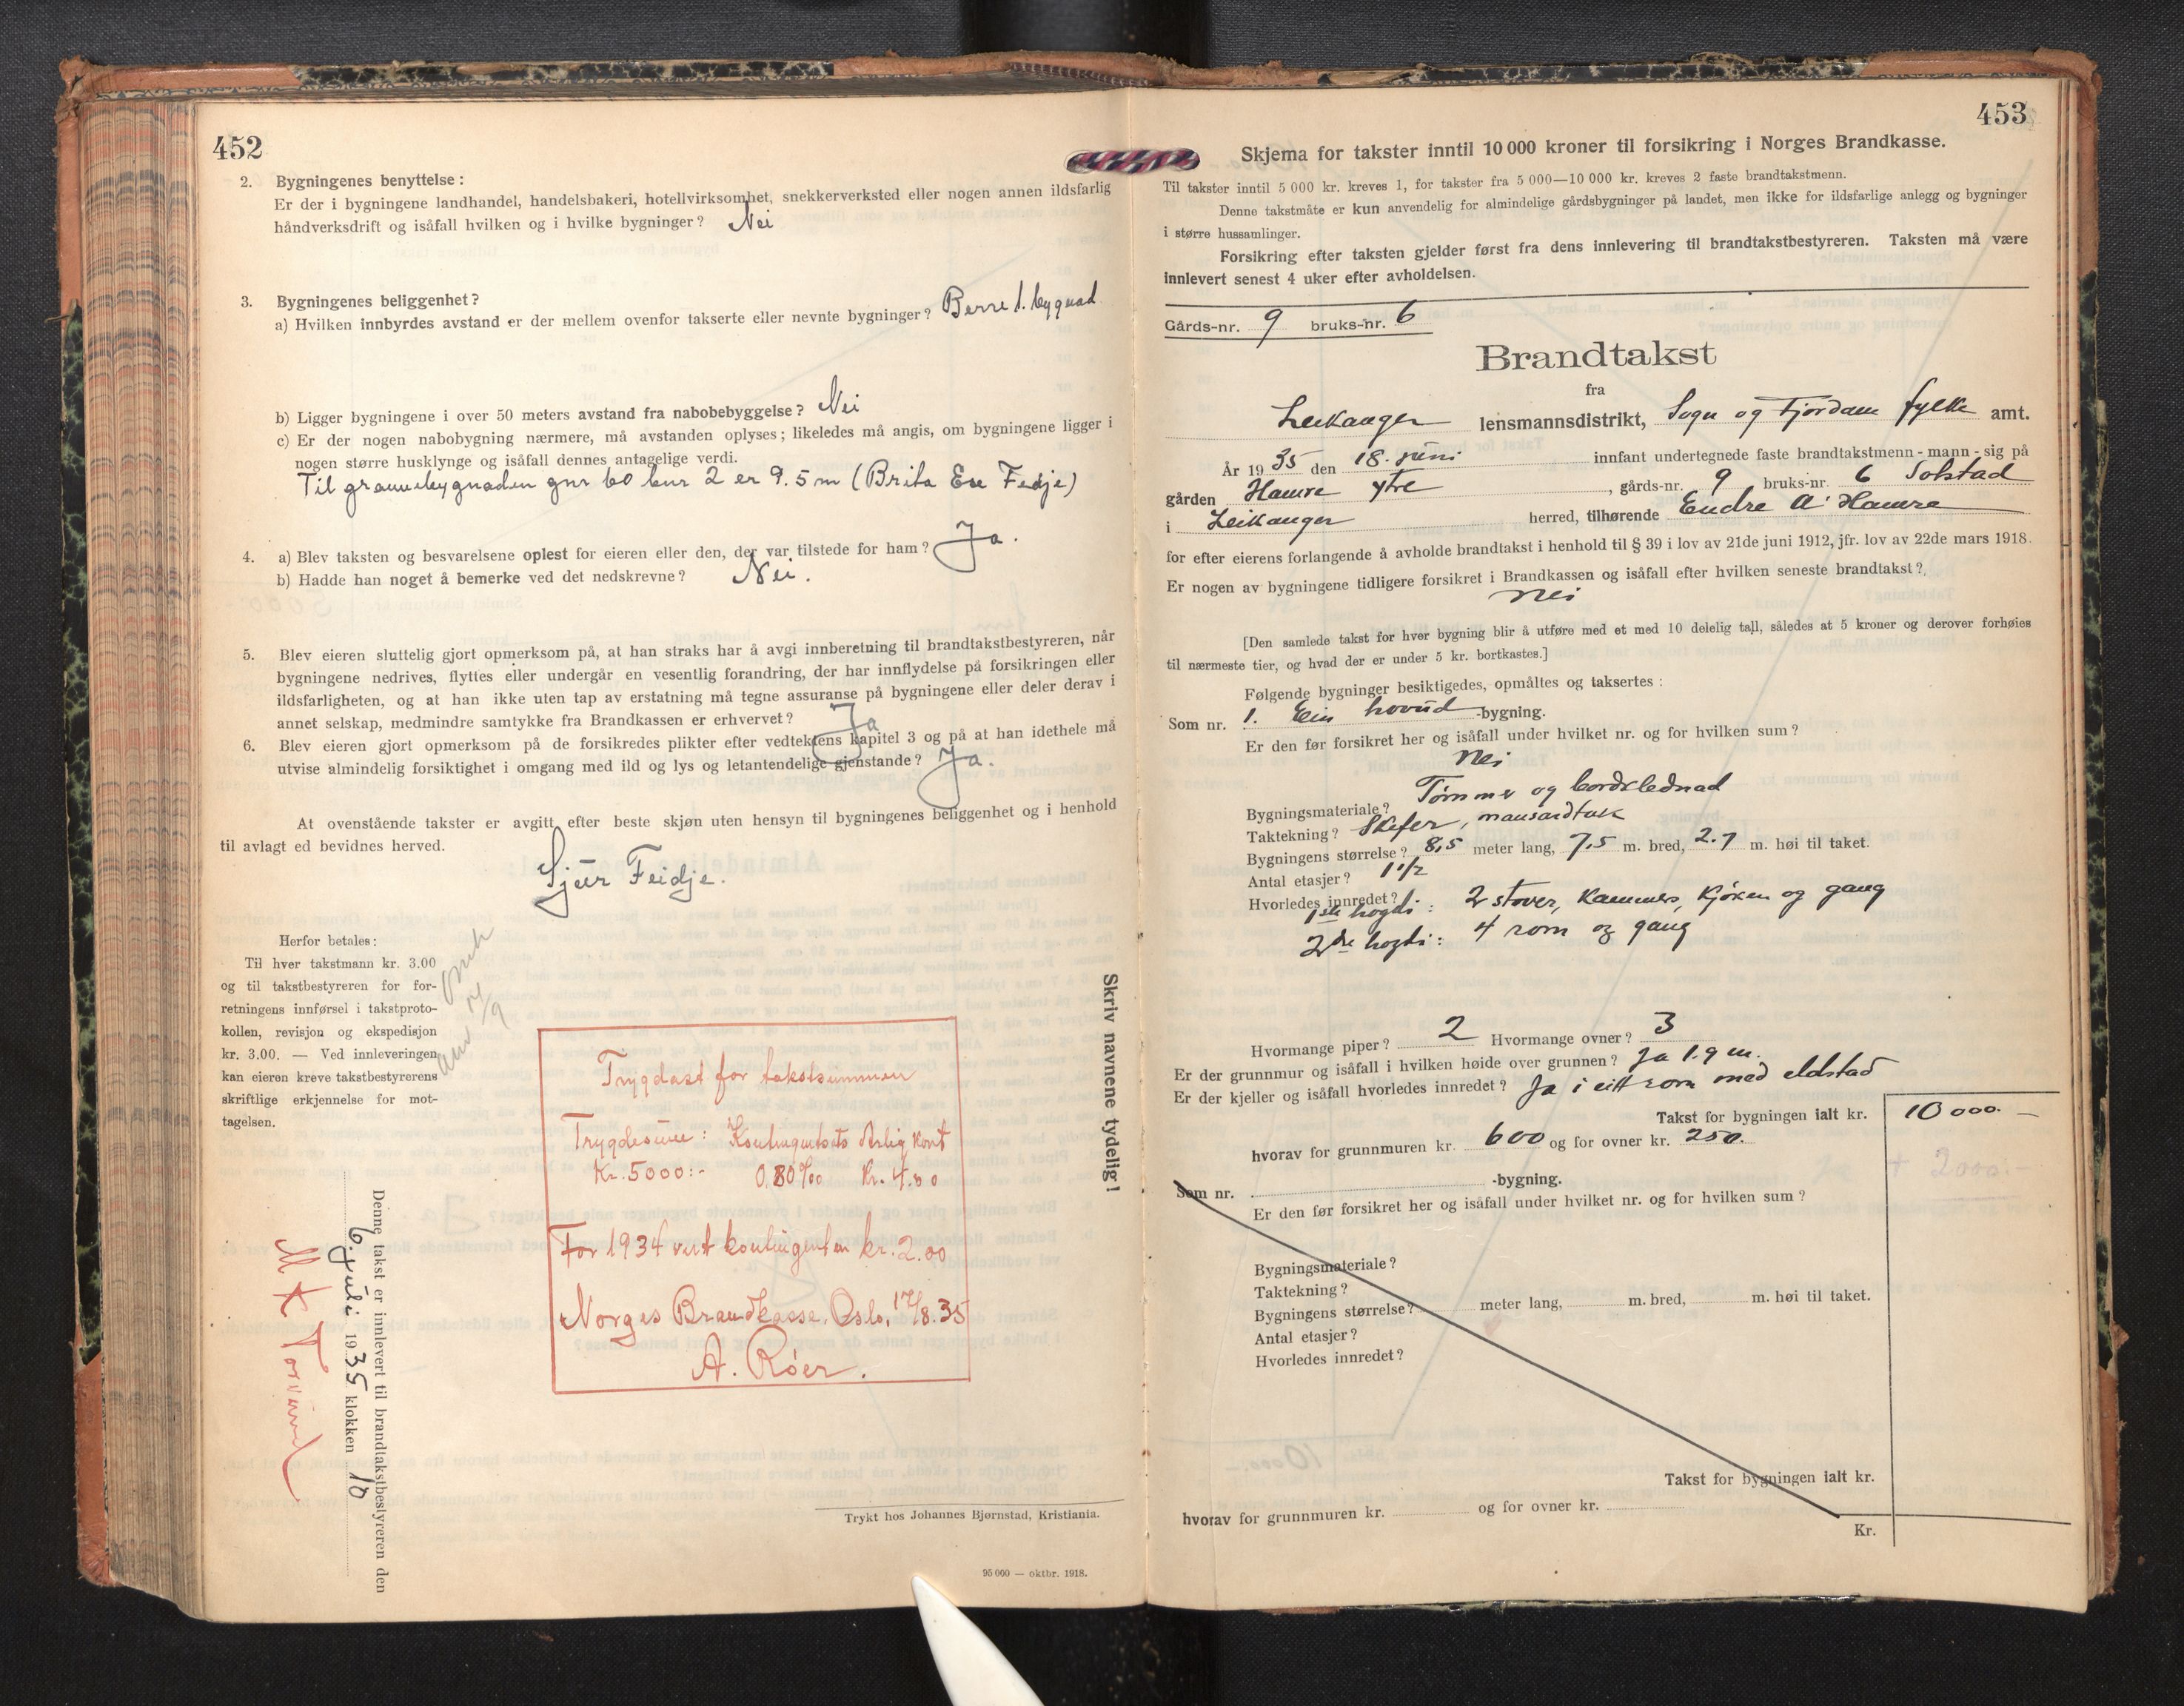 452
2. Bygningenes benyttelse:
Er der i bygningene landhandel, handelsbakeri, hotellvirksomhet, snekkerverksted eller nogen annen ildsfarlig
håndverksdrift og isåfall hvilken og i hvilke bygninger? Nei
3. Bygningenes beliggenhet?
a) Hvilken innbyrdes avstand er der mellem ovenfor takserte eller nevnte bygninger? Berre 1. bygnad
b) Ligger bygningene i over 50 meters avstand fra nabobebyggelse? Nei
c) Er der nogen nabobygning nærmere, må avstanden oplyses; likeledes må angis, om bygningene ligger i
nogen større husklynge og isåfall dennes antagelige verdi.
Til grannebygnaden gnr 60 bnr 2 er 9.5 m (Brita Ese Feidje)
4. a) Blev taksten og besvarelsene oplest for eieren eller den, der var tilstede for ham? Ja.
b) Hadde han noget å bemerke ved det nedskrevne? Nei.
5. Blev eieren sluttelig gjort opmerksom på, at han straks har å avgi innberetning til brandtakstbestyreren, når
bygningene nedrives, flyttes eller undergår en vesentlig forandring, der har innflydelse på forsikringen eller
ildsfarligheten, og at han ikke uten tap av erstatning må tegne assuranse på bygningene eller deler derav i
annet selskap, medmindre samtykke fra Brandkassen er erhvervet? Ja
6. Blev eieren gjort opmerksom på de forsikredes plikter efter vedtektens kapitel 3 og på at han idethele må
utvise almindelig forsiktighet i omgang med ild og lys og letantendelige gjenstande? Ja.
At ovenstående takster er avgitt efter beste skjøn uten hensyn til bygningenes beliggenhet og i henhold
til avlagt ed bevidnes herved.
Sjur Feidje.
Herfor betales:
Til hver takstmann kr. 3.00
og til takstbestyreren for for-
retningens innførsel i takstproto-
kollen, revisjon og ekspedisjon
kr. 3.00. — Ved innleveringen
kan eieren kreve takstbestyrerens
skriftlige erkjennelse for mot-
tagelsen.
Trygdast for takstsummen
Trygdesum: Kontingentsats Årlig kont
Kr. 5000:- 0,80‰ Kr. 4.00
For 1934 vert kontingenten kr. 2.00
Norges Brandkasse, Oslo, 17/8.35
A. Röer.
Skriv navnene tydelig!
Denne takst er innlevert til brandtakstbestyreren den
6. juli 1935 klokken 10
Trykt hos Johannes Bjørnstad, Kristiania.
95 000 — oktbr. 1918.
453
Skjema for takster inntil 10 000 kroner til forsikring i Norges Brandkasse.
Til takster inntil 5 000 kr. kreves 1, for takster fra 5 000—10 000 kr. kreves 2 faste brandtakstmenn.
Denne takstmåte er kun anvendelig for almindelige gårdsbygninger på landet, men ikke for ildsfarlige anlegg og bygninger
i større hussamlinger.
Forsikring efter taksten gjelder først fra dens innlevering til brandtakstbestyreren. Taksten må være
innlevert senest 4 uker efter avholdelsen.
Gårds-nr. 9 bruks-nr. 6
Brandtakst
fra
Leikanger lensmannsdistrikt, Sogn og Fjordane fylke amt.
År 1935 den 18. juni innfant undertegnede faste brandtakstmenn - mann - sig på
gården Hamre ytre, gårds-nr. 9 bruks-nr. 6 Solstad
i Leikanger herred, tilhørende Endre A. Hamre
for efter eierens forlangende å avholde brandtakst i henhold til § 39 i lov av 21de juni 1912, jfr. lov av 22de mars 1918.
Er nogen av bygningene tidligere forsikret i Brandkassen og isåfall efter hvilken seneste brandtakst?
Nei
[Den samlede takst for hver bygning blir å utføre med et med 10 delelig tall, således at 5 kroner og derover forhøies
til nærmeste tier, og hvad der er under 5 kr. bortkastes.]
Følgende bygninger besiktigedes, opmåltes og taksertes:
Som nr. 1. Ein hovud-bygning.
Er den før forsikret her og isåfall under hvilket nr. og for hvilken sum?
Nei
Bygningsmateriale? Tømmer og bordklednad
Taktekning? Skifer, mansardtak
Bygningens størrelse? 8,5 meter lang, 7,5 m. bred, 2.7 m. høi til taket.
Antal etasjer? 1 1/2
Hvorledes innredet?
1ste høgdi: 2 stover, kammers, kjøken og gang
2dre høgdi: 4 rom og gang
Hvormange piper? 2 Hvormange ovner? 3
Er der grunnmur og isåfall i hvilken høide over grunnen? Ja 1.9 m.
Er der kjeller og isåfall hvorledes innredet? Ja i eitt rom med eldstad
Takst for bygningen ialt kr. 10 000.—
hvorav for grunnmuren kr. 600 og for ovner kr. 250.
+ 2000.-
Som nr. -bygning.
Er den før forsikret her og isåfall under hvilket nr. og for hvilken sum?
Bygningsmateriale?
Taktekning?
Bygningens størrelse? meter lang, m. bred, m. høi til taket.
Antal etasjer?
Hvorledes innredet?
Takst for bygningen ialt kr.
hvorav for grunnmuren kr. og for ovner kr.
Kr.